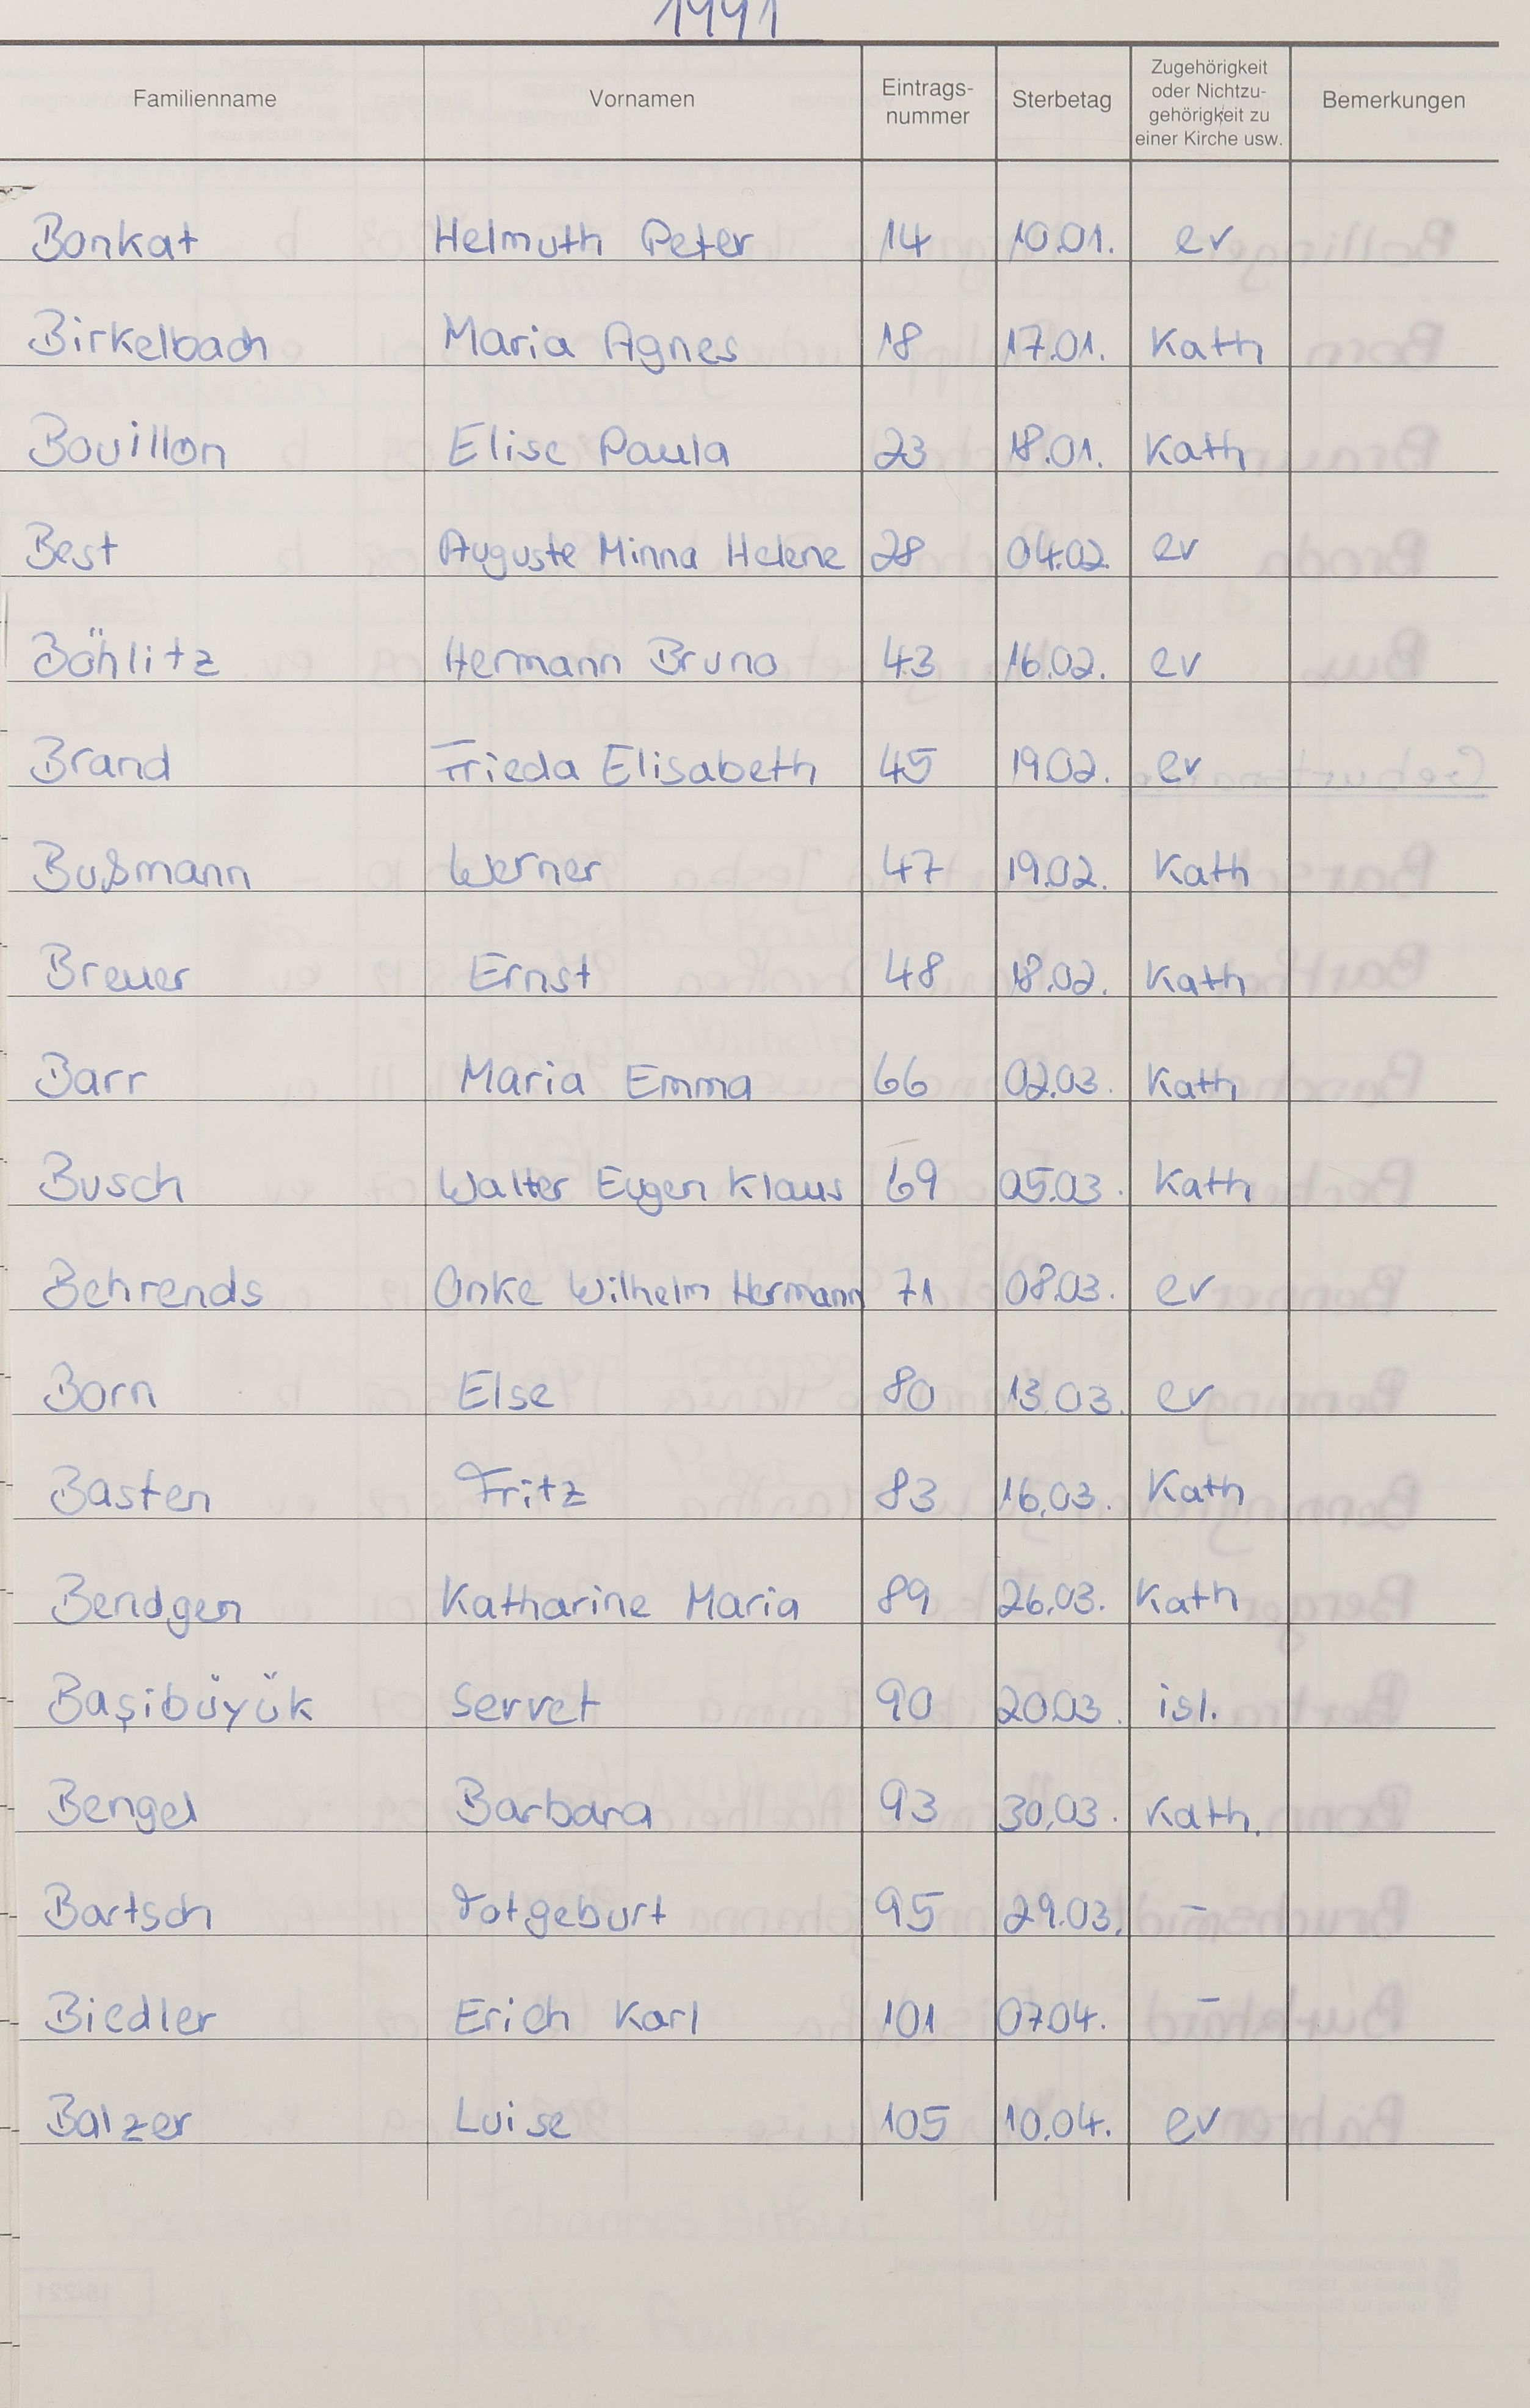 1991
Familienname Vornamen Eintrags-nummer Sterbetag Zugehörigkeit oder Nichtzu-gehörigkeit zu einer Kirche usw. Bemerkungen
Bonkat Helmuth Peter 14 10.01. ev
Birkelbach Maria Agnes 18 17.01. Kath
Bouillon Elise Paula 23 18.01. Kath
Best Auguste Minna Helene 28 04.02. ev
Böhlitz Hermann Bruno 43 16.02. ev
Brand Frieda Elisabeth 45 19.02. ev
Bußmann Werner 47 19.02. Kath
Breuer Ernst 48 18.02. Kath
Barr Maria Emma 66 02.03. Kath
Busch Walter Eugen Klaus 69 05.03. Kath
Behrends Onke Wilhelm Hermann 71 08.03. ev
Born Else 80 13.03. ev
Basten Fritz 83 16.03. Kath
Bendgen Katharine Maria 89 26.03. Kath
Başibüyük Servet 90 20.03. isl.
Bengel Barbara 93 30.03. Kath.
Bartsch Totgeburt 95 29.03. –
Biedler Erich Karl 101 07.04. –
Balzer Luise 105 10.04. ev